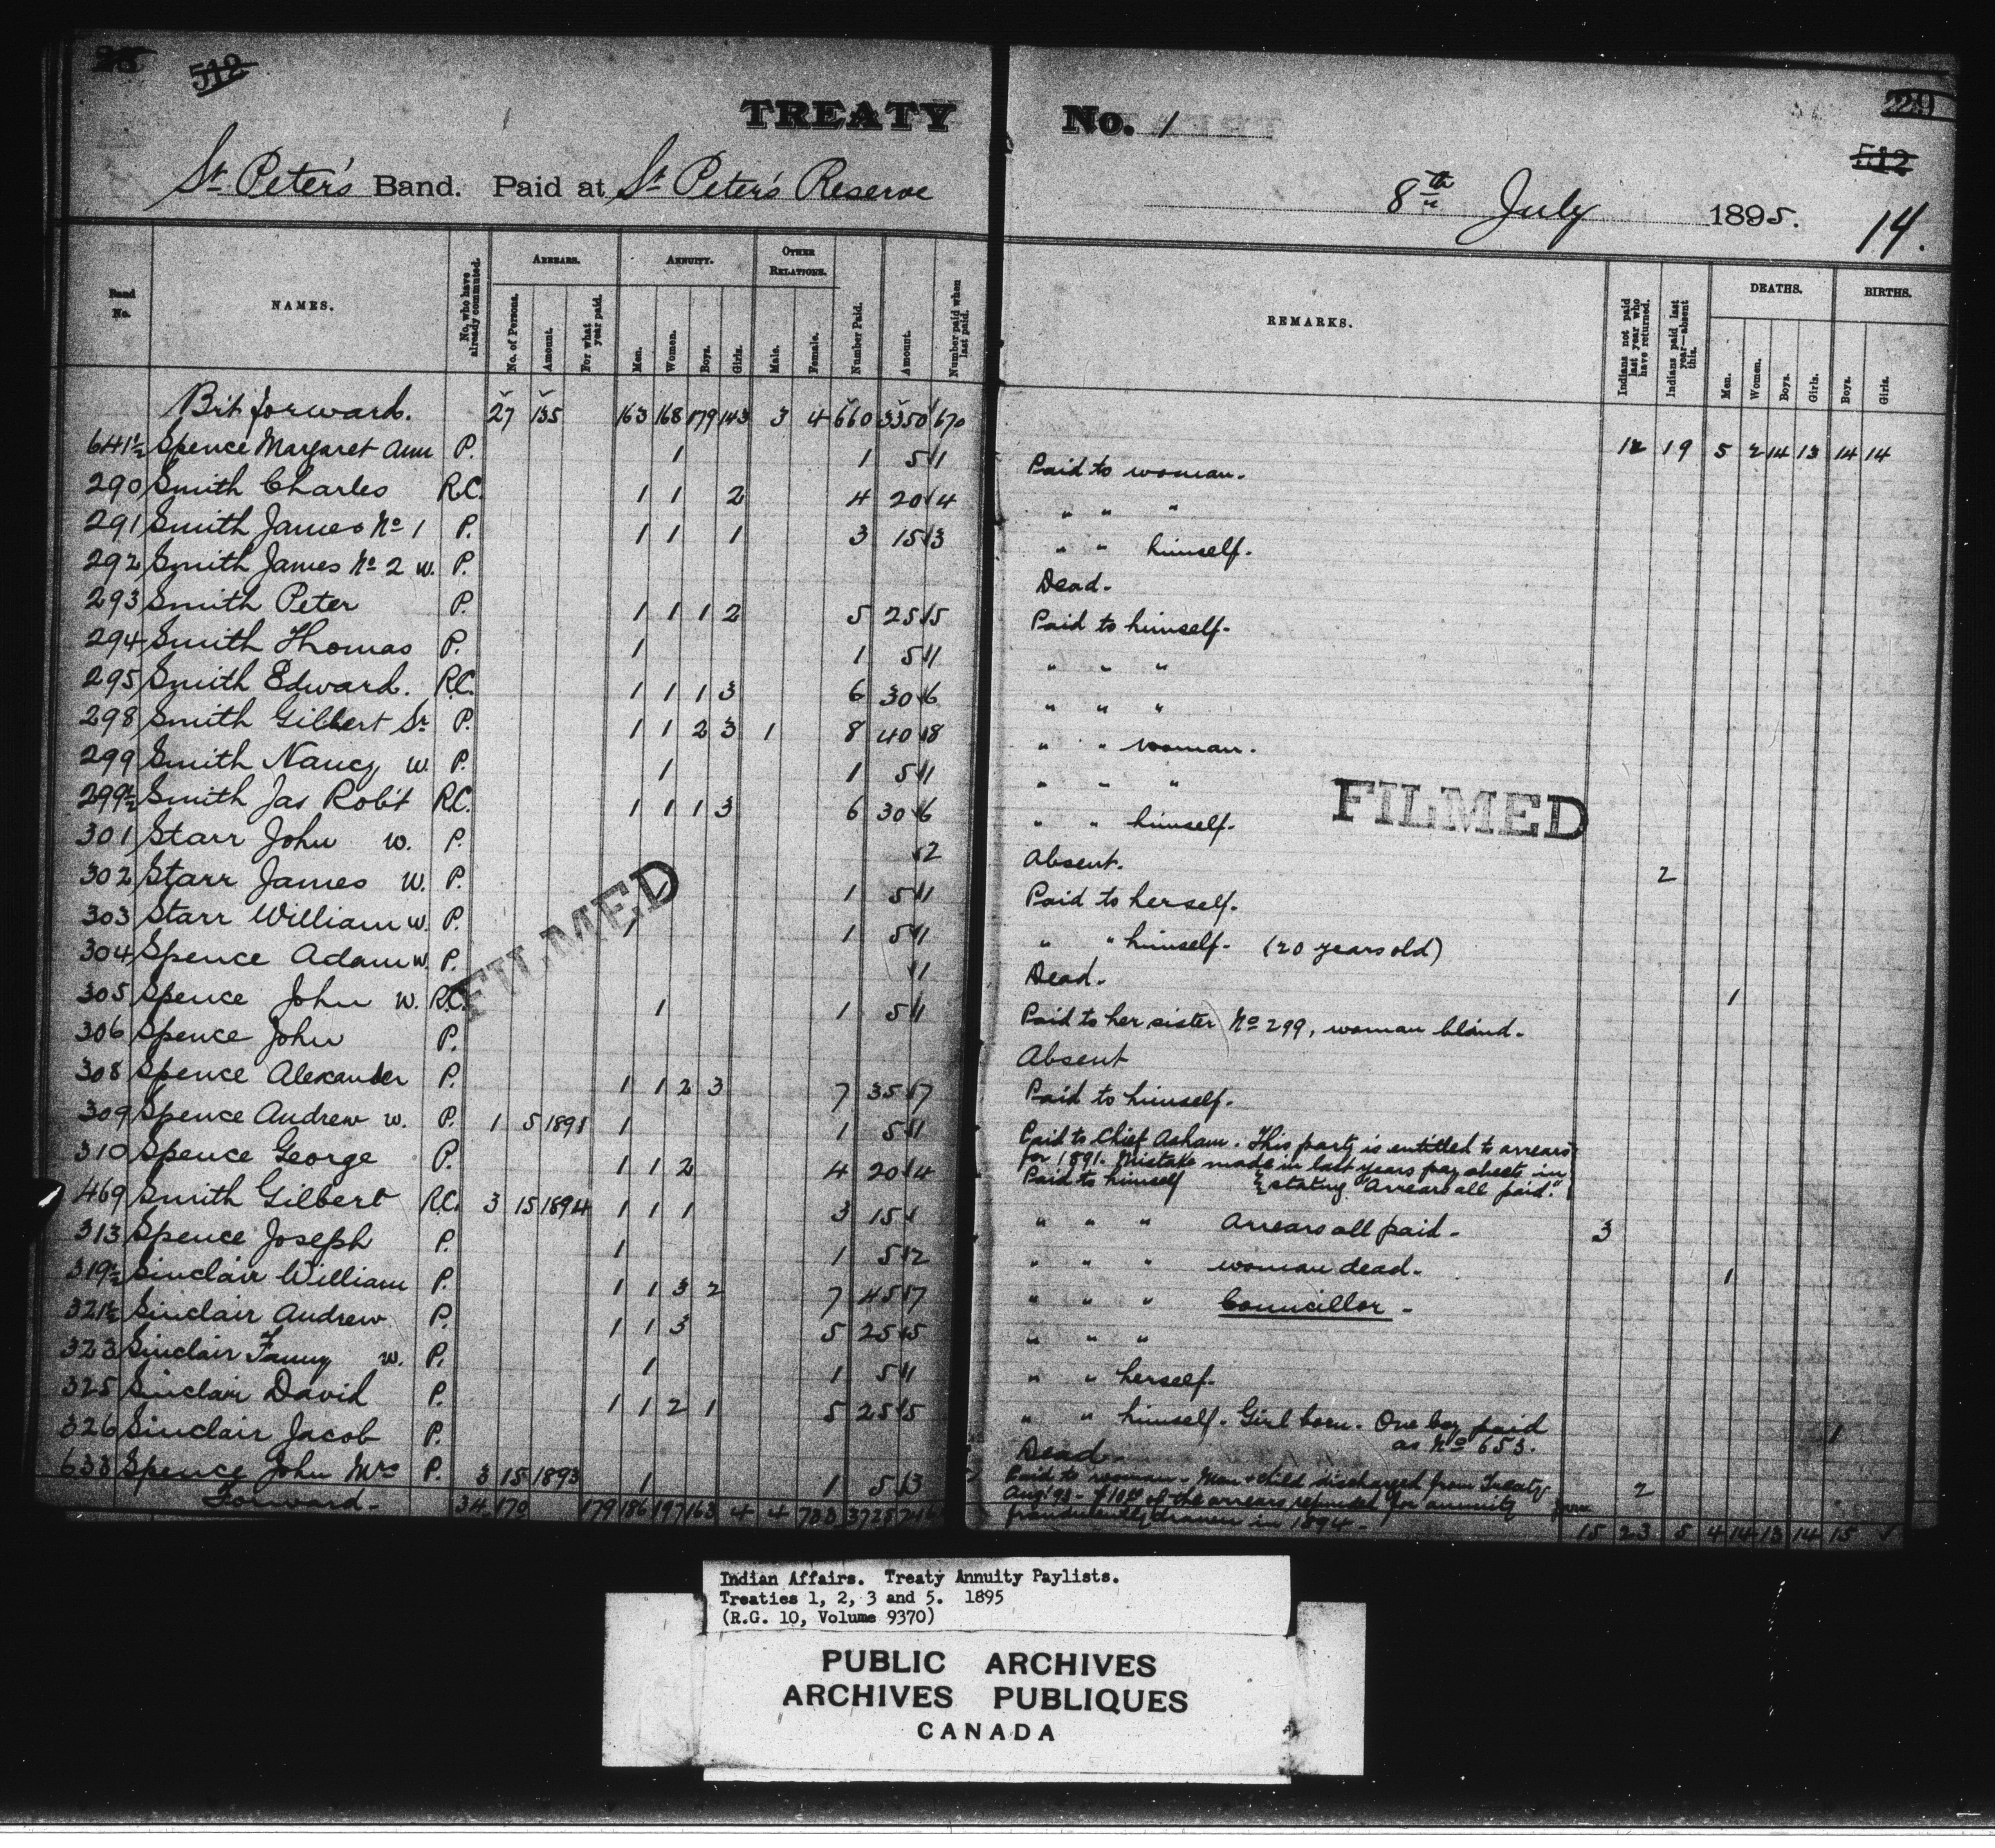 28 512
TREATY No. 1 229
512
St. Peter's Band. Paid at St. Peter's Reserve 8th July 1895. 14.
Band No. NAMES. No. who have already commuted. ARREARS. ANNUITY. OTHER RELATIONS. Number Paid. Amount. Number paid when last paid. REMARKS. Indians not paid last year who have returned. Indians paid last year—absent this. DEATHS. BIRTHS.
No. of Persons. Amount. For what year paid. Men. Women. Boys. Girls. Male. Female. Men. Women. Boys. Girls. Boys. Girls.
Brt forward. 27 135 163 168 179 143 3 4 660 3350 670 12 19 5 2 14 13 14 14
641½ Spence Margaret Ann P. 1 1 5 1 Paid to woman.
290 Smith Charles R.C. 1 1 2 4 20 4 " " "
291 Smith James No 1 P. 1 1 1 3 15 3 " " himself.
292 Smith James No 2 w. P. Dead.
293 Smith Peter P. 1 1 1 2 5 25 5 Paid to himself.
294 Smith Thomas P. 1 1 5 1 " " "
295 Smith Edward. R.C. 1 1 1 3 6 30 6 " " "
298 Smith Gilbert Sr P. 1 1 2 3 1 8 40 8 " " woman.
299 Smith Nancy w. P. 1 1 5 1 " " "
299½ Smith Jas Rob't R.C. 1 1 1 3 6 30 6 " " himself.
301 Starr John w. P. 2 Absent. 2
302 Starr James w. P. 1 1 5 1 Paid to herself.
303 Starr William w. P. 1 1 5 1 " " himself. (20 years old)
304 Spence Adam w. P. 1 Dead. 1
305 Spence John w. R.C. 1 1 5 1 Paid to her sister No 299, woman blind.
306 Spence John P. Absent
308 Spence Alexander P. 1 1 2 3 7 35 7 Paid to himself.
309 Spence Andrew w. P. 1 5 1891 1 1 5 1 Paid to Chief Asham. This party is entitled to arrears
for 1891. Mistake made in last years pay sheets in
310 Spence George P. 1 1 2 4 20 4 Paid to himself stating "Arrears all paid."
469 Smith Gilbert R.C. 3 15 1894 1 1 1 3 15 " " " Arrears all paid. 3
313 Spence Joseph P. 1 1 5 2 " " " woman dead. 1
319½ Sinclair William P. 1 1 3 2 7 45 7 " " " Councillor
321½ Sinclair Andrew P. 1 1 3 5 25 5 " " "
323 Sinclair Fanny w. P. 1 1 5 1 " " herself.
325 Sinclair David P. 1 1 2 1 5 25 5 " " himself. Girl born. One boy paid 1
as No 653.
326 Sinclair Jacob P. Dead.
633 Spence John Mrs P. 3 15 1893 1 1 5 3 Paid to woman. Man & child discharged from Treaty 2
Aug '93. $10.00 of the arrears refunded for annuity
fraudulently drawn in 1894.
Forward. 34 170 179 186 197 163 4 4 733 3725 15 23 5 4 14 13 14 15
FILMED
FILMED
Indian Affairs. Treaty Annuity Paylists.
Treaties 1, 2, 3 and 5. 1895
(R.G. 10, Volume 9370)
PUBLIC ARCHIVES
ARCHIVES PUBLIQUES
CANADA